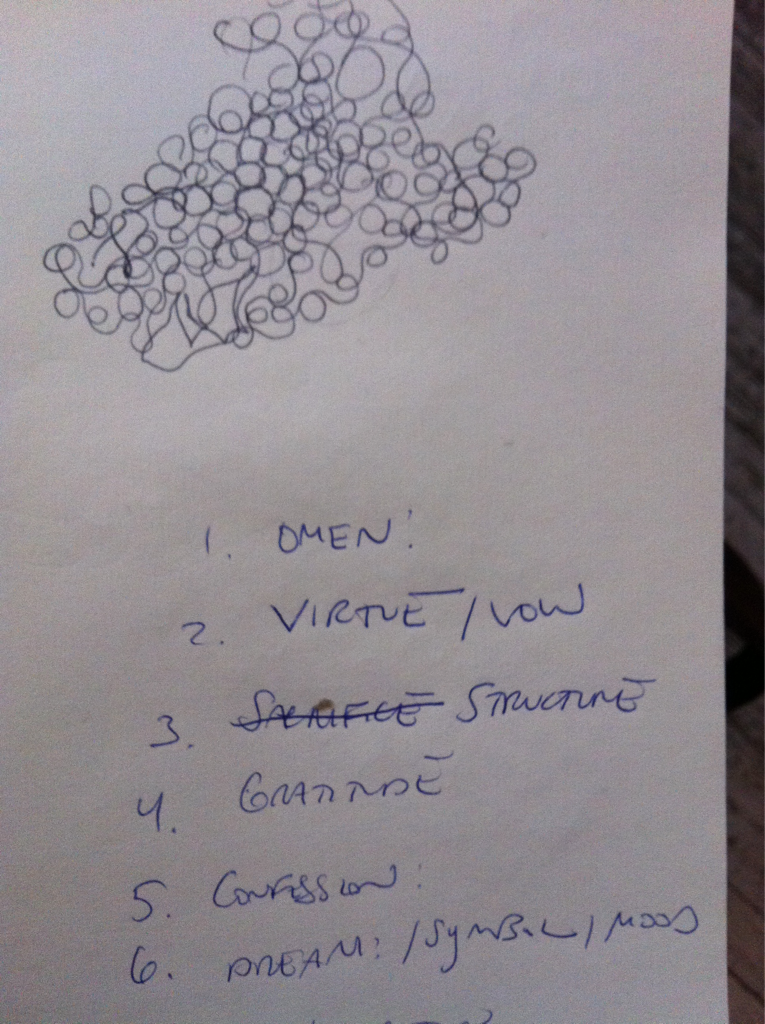 1. OMEN:
2. VIRTUE / VOW
3. SACRIFICE STRUCTURE
4. GRATITUDE
5. CONFESSION:
6. DREAM: / SYMBOL / MOOD